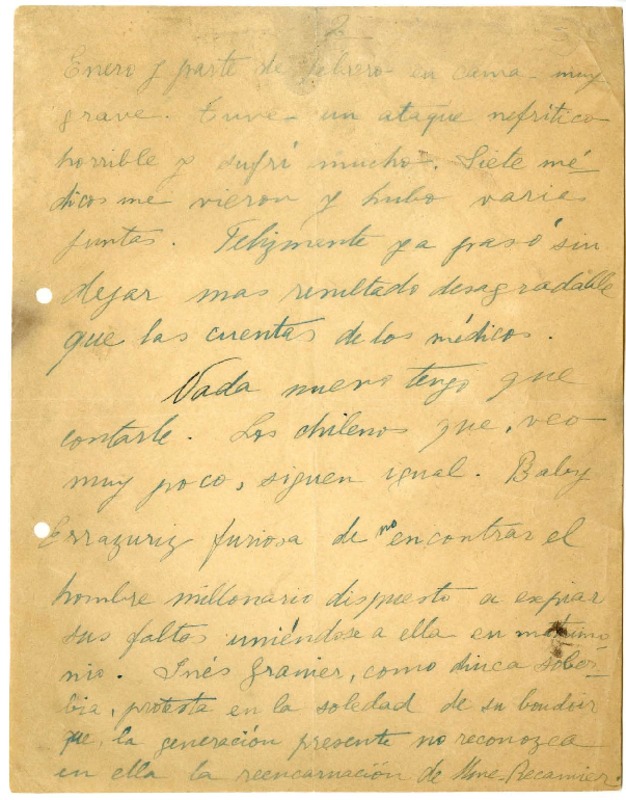 2
Enero y parte de Febrero en cama muy
grave. Tuve un ataque nefrítico
horrible y sufrí mucho. Siete mé-
dicos me vieron y hubo varias
juntas. Felizmente ya pasó sin
dejar mas resultado desagradable
que las cuentas de los médicos.
Nada nuevo tengo que
contarle. Los chilenos que, veo
muy poco, siguen igual. Baby
Errazuriz furiosa de no encontrar el
hombre millonario dispuesto a expiar
sus faltas uniéndose a ella en matrimo
nio. Inés Granier, como diuca sober-
bia, protesta en la soledad de su boudoir
que, la generación presente no reconozca
en ella la reencarnación de Mme-Recamier.